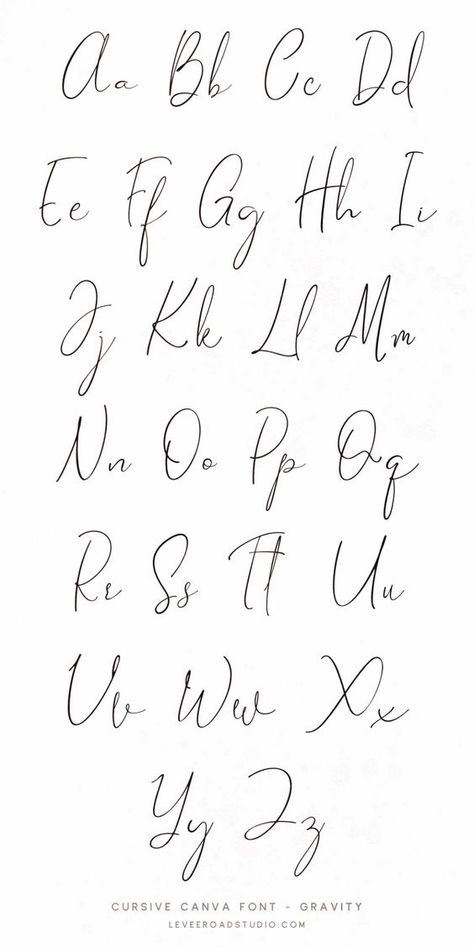 Aa Bb Cc Dd
Ee Ff Gg Hh Ii
Jj Kk Ll Mm
Nn Oo Pp Qq
Rr Ss Tt Uu
Vv Ww Xx
Yy Zz
CURSIVE CANVA FONT - GRAVITY
LEVEEROADSTUDIO.COM